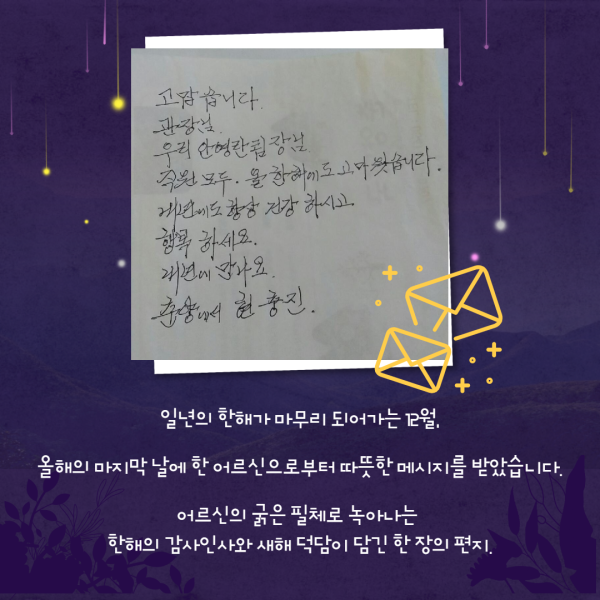 고맙습니다.
관장님.
우리 안영란팀장님
직원 모두. 올 한해에도 고마웠습니다.
내년에도 항상 건강 하시고.
행복 하세요.
내년에 만나요.
현충진.
일년의 한해가 마무리 되어가는 12월,
올해의 마지막 날에 한 어르신으로부터 따뜻한 메시지를 받았습니다.
어르신의 굵은 필체로 녹아나는
한해의 감사인사와 새해 덕담이 담긴 한 장의 편지.